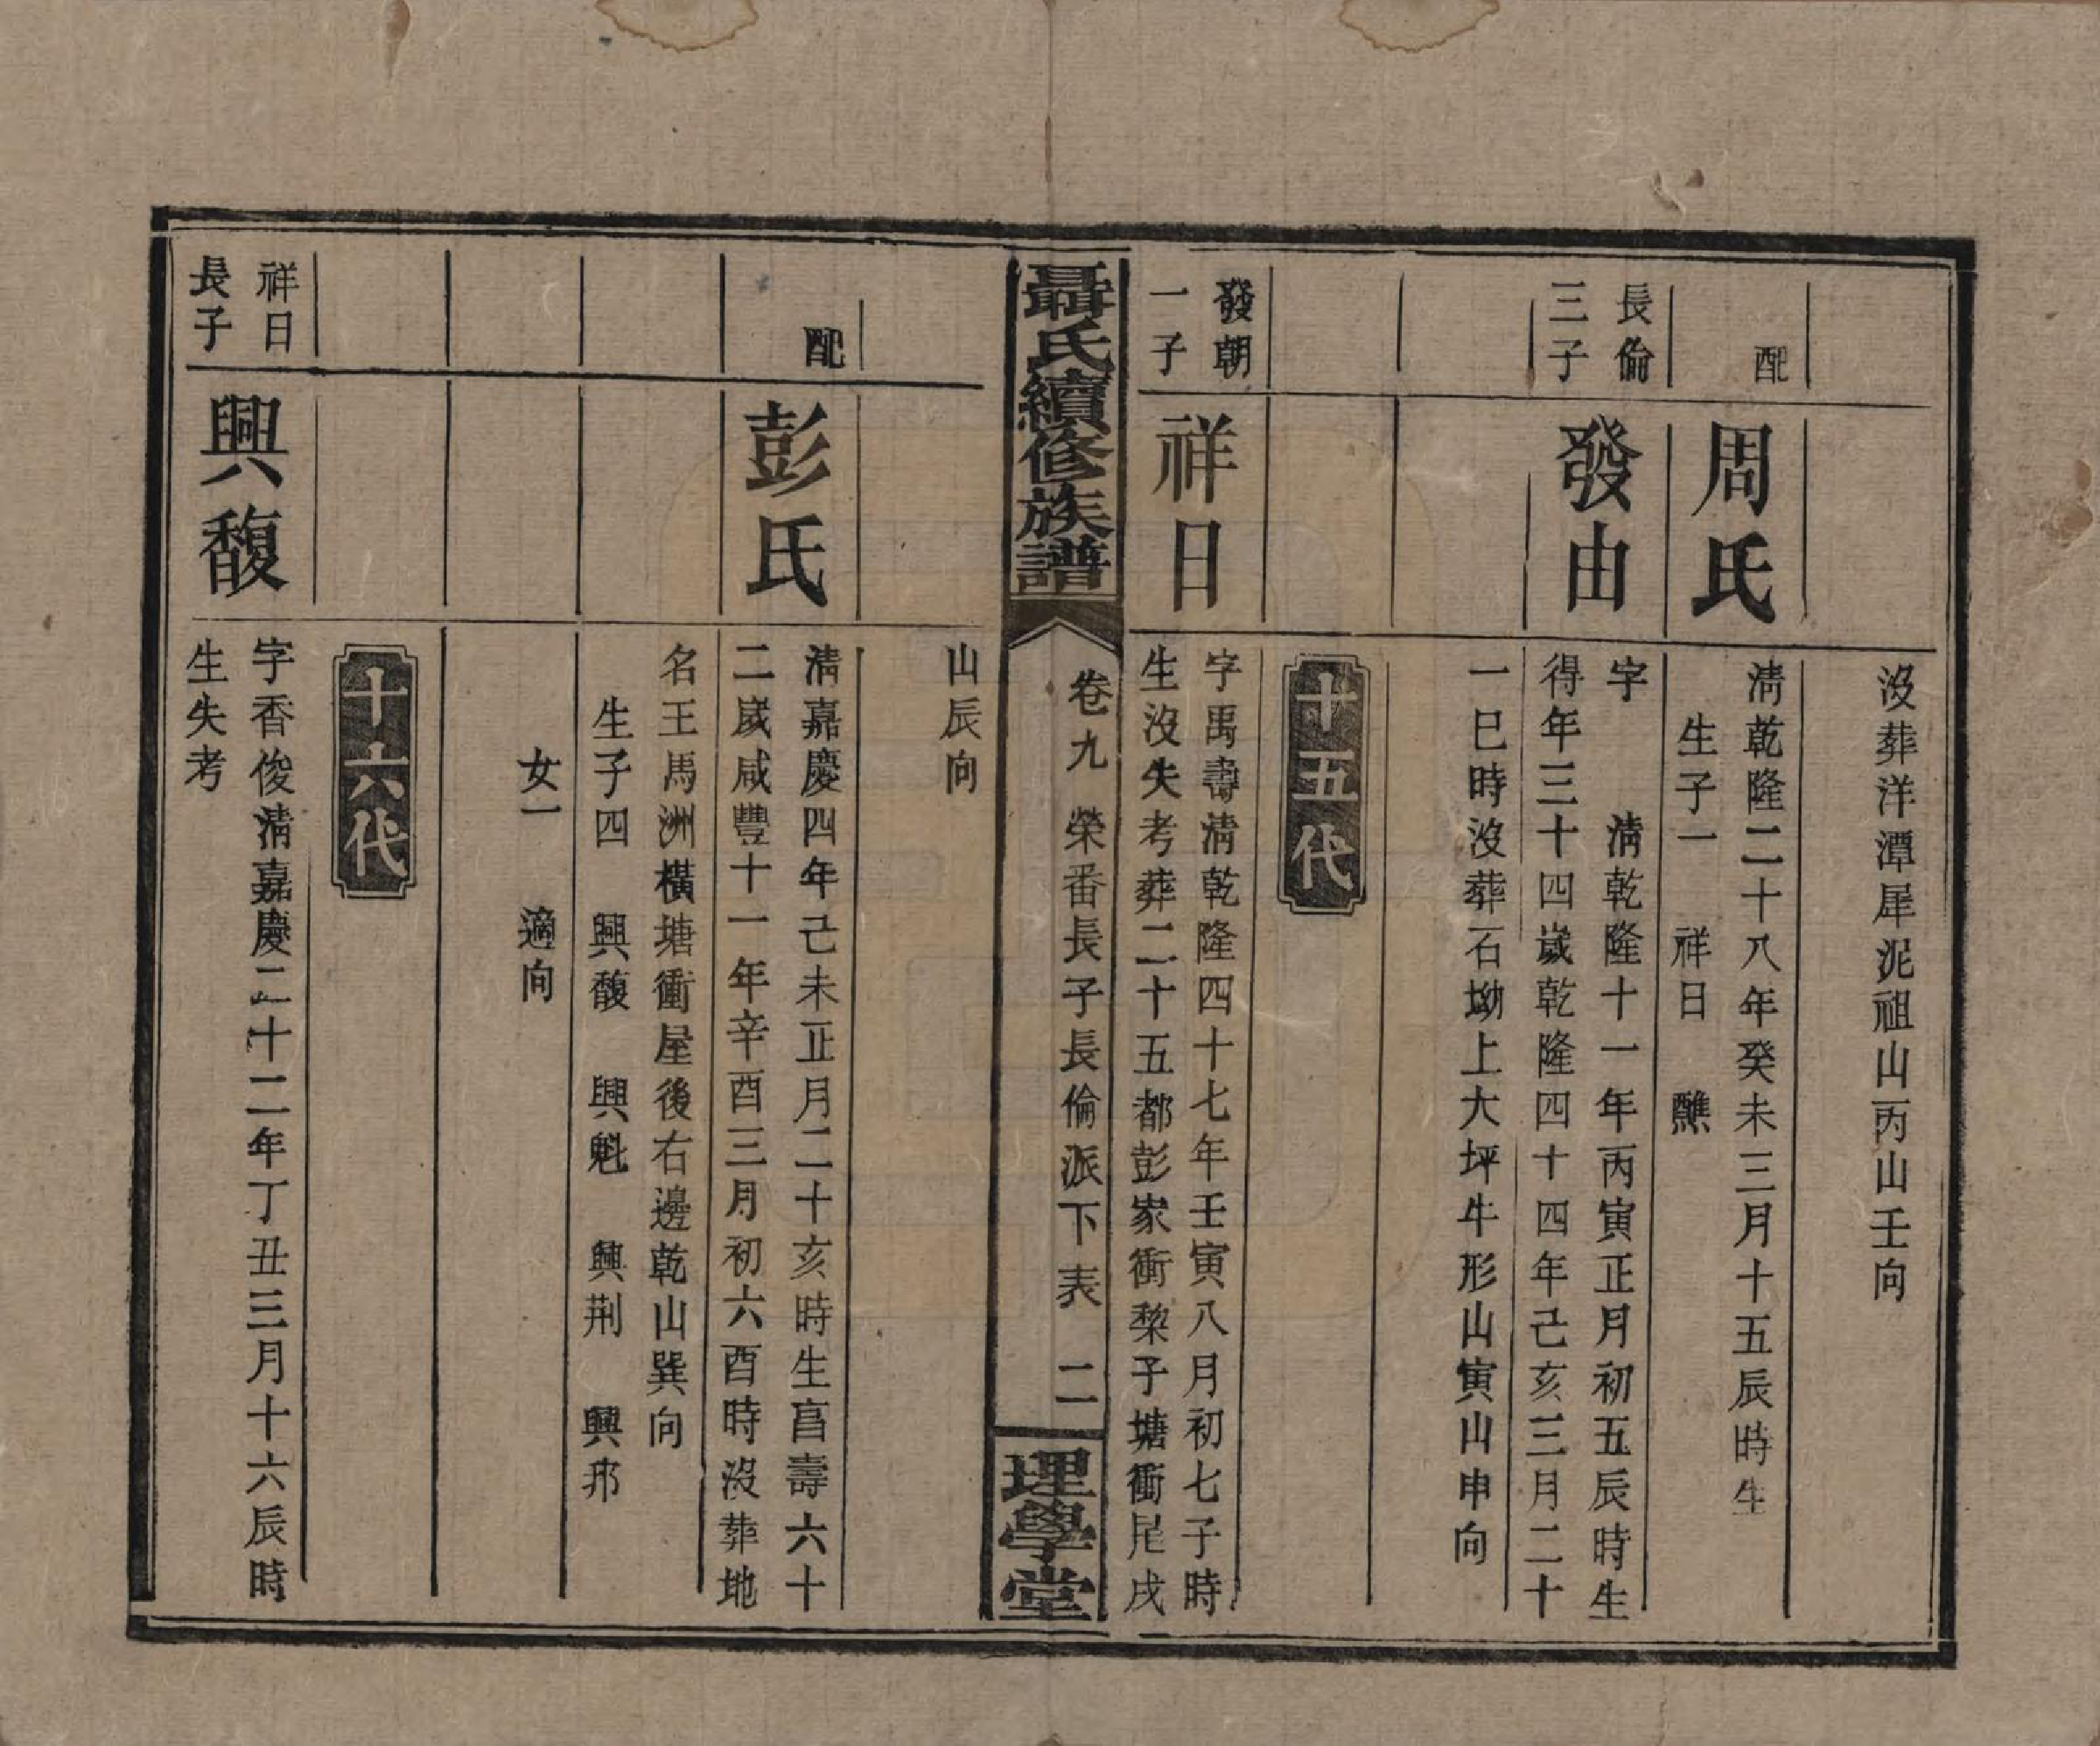 沒葬洋潭犀泥祖山丙山壬向
配
周氏
清乾隆二十八年癸未三月十五辰時生
生子一 祥日 醮
長倫
三子
發由
字 清乾隆十一年丙寅正月初五辰時生
得年三十四歲乾隆四十四年己亥三月二十
一巳時沒葬石坳上大坪牛形山寅山申向
十五代
發朝
一子
祥日
字禹壽清乾隆四十七年壬寅八月初七子時
生沒失考葬二十五都彭家衝棃子塘衝尾戌
聶氏續修族譜
卷九 榮番長子長倫派下表 二
理學堂
山辰向
配
彭氏
清嘉慶四年己未正月二十亥時生享壽六十
二歲咸豐十一年辛酉三月初六酉時沒葬地
名王馬洲橫塘衝屋後右邊乾山巽向
生子四 興馥 興魁 興荆 興邦
女一 適向
十六代
祥日
長子
興馥
字香俊清嘉慶二十二年丁丑三月十六辰時
生失考